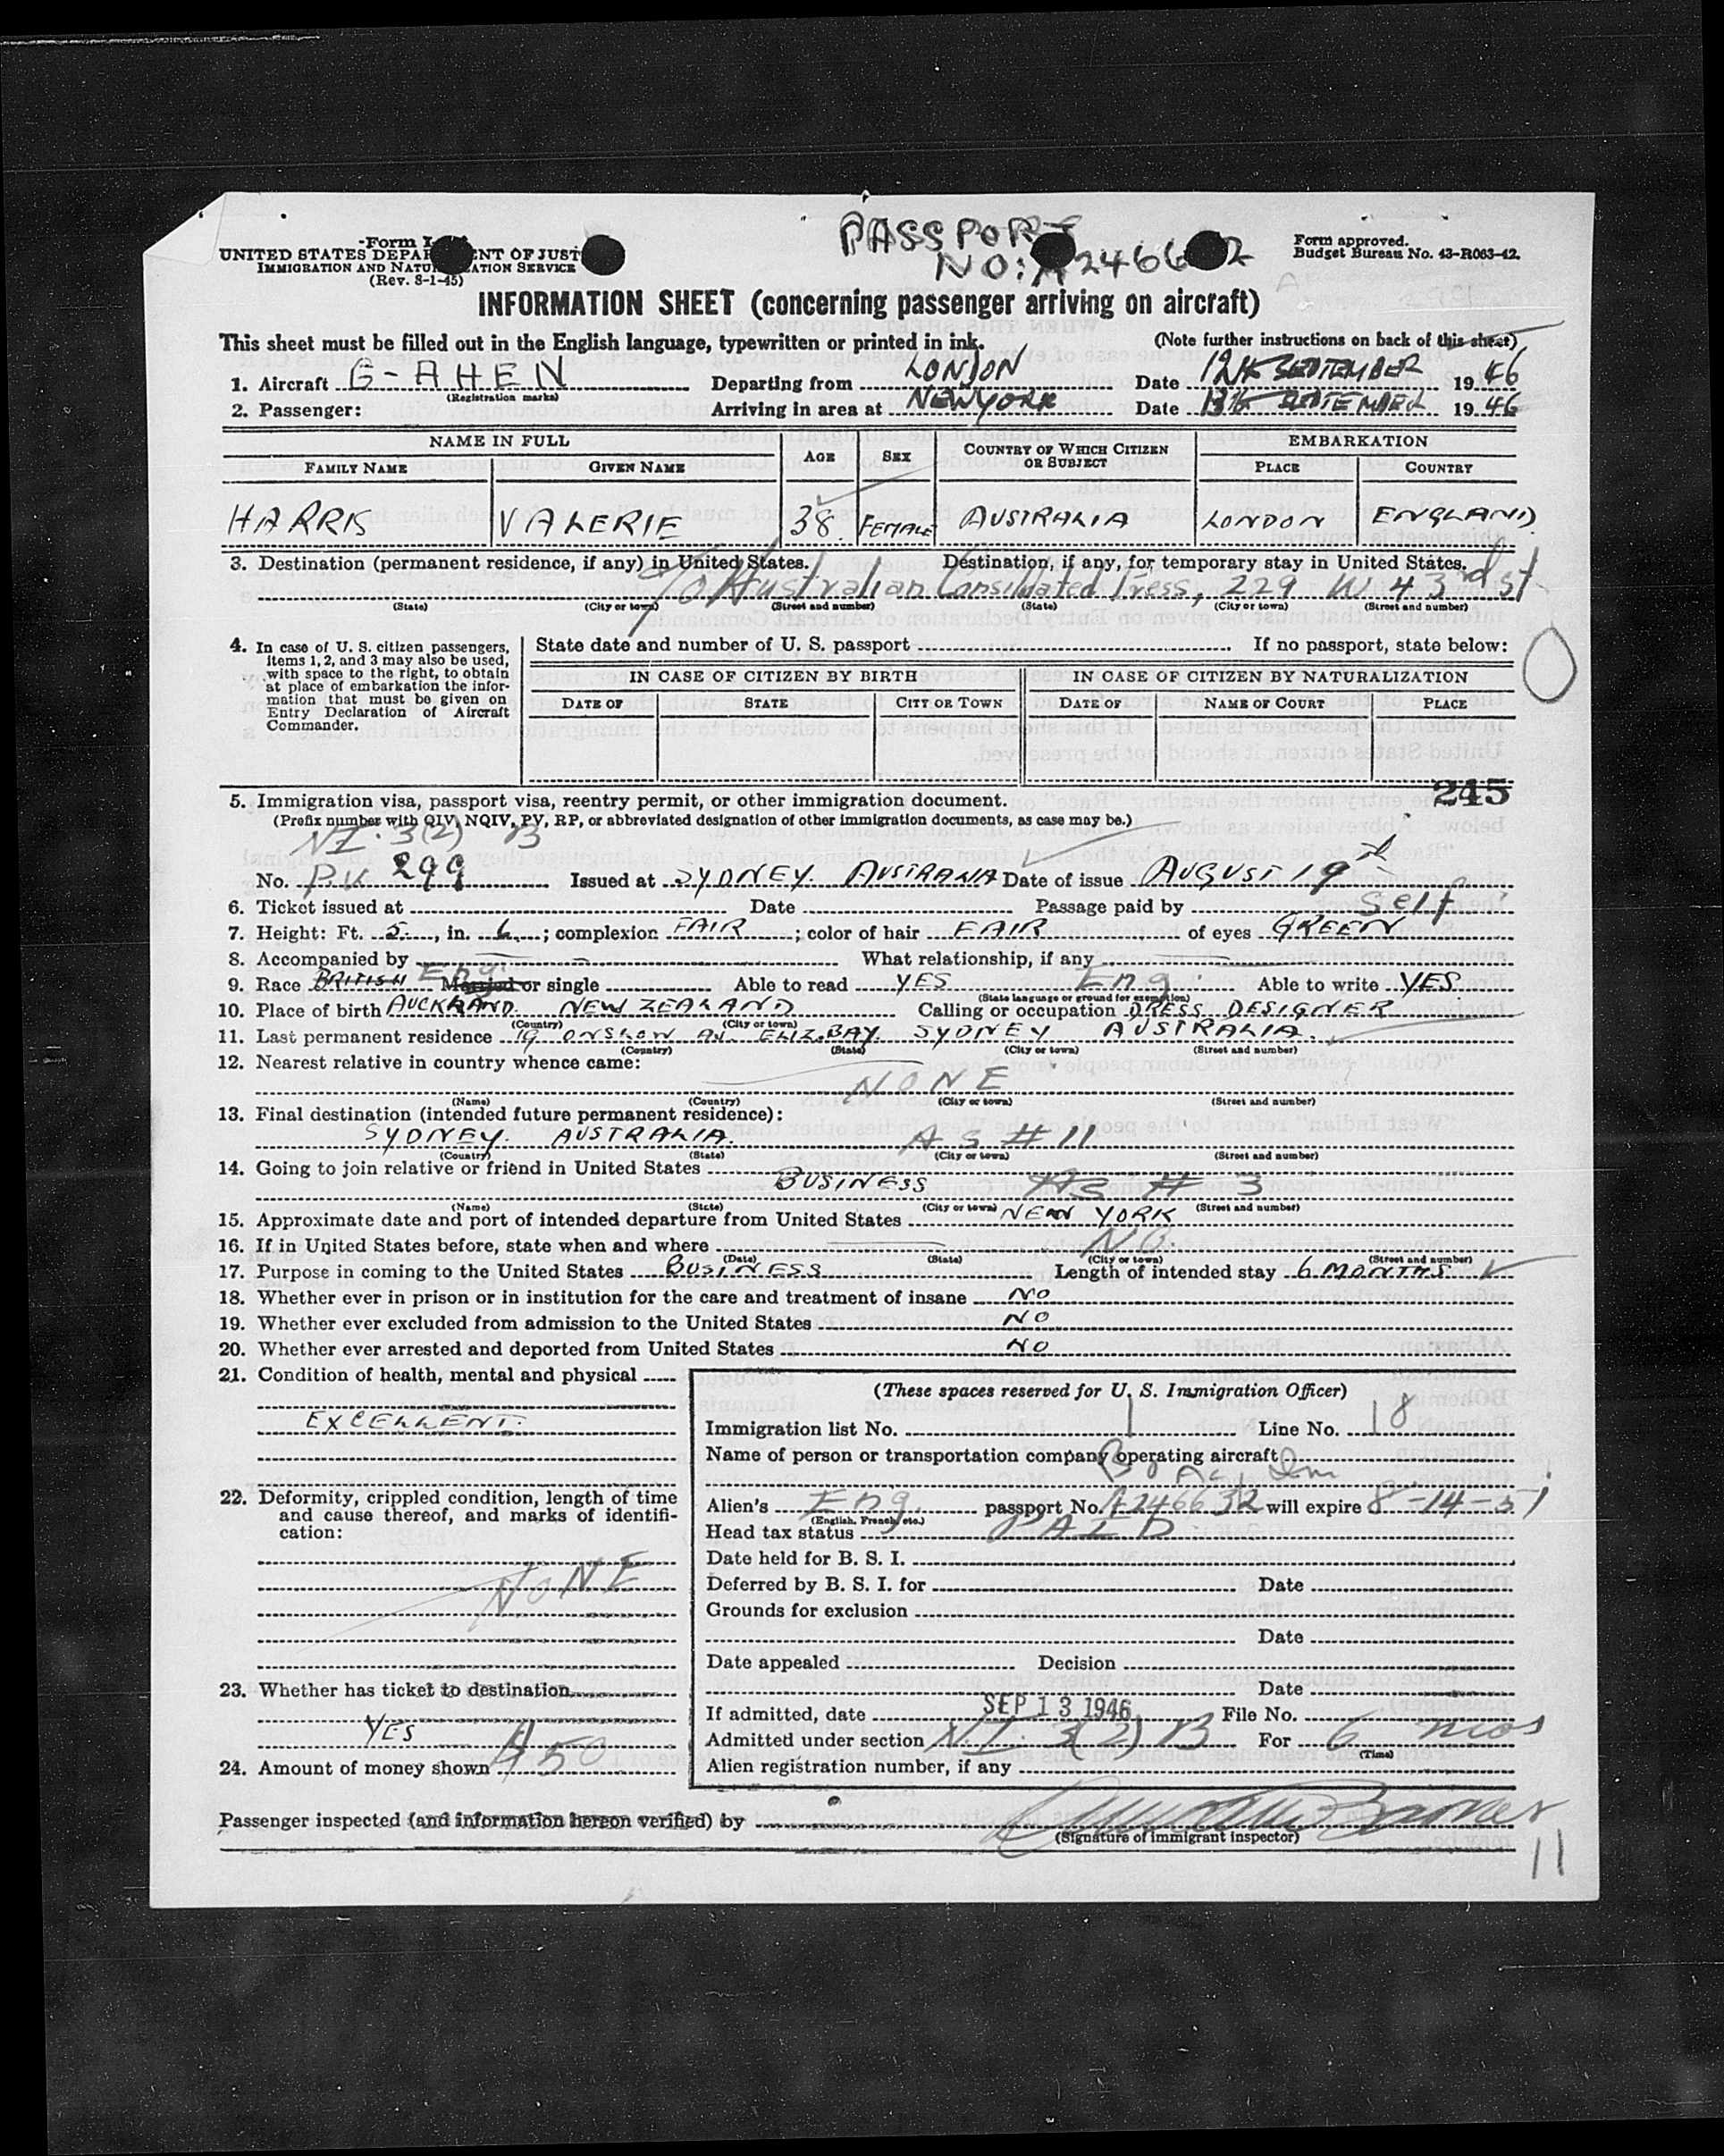 PASSPORT
Form I
UNITED STATES DEPAR NT OF JUST
NO: A2466 2
Form approved.
Budget Bureau No. 43-R063-42.
IMMIGRATION AND NATU ATION SERVICE
(Rev. 8-1-45)
INFORMATION SHEET (concerning passenger arriving on aircraft)
This sheet must be filled out in the English language, typewritten or printed in ink. (Note further instructions on back of this sheet)
1. Aircraft G-AHEN Departing from LONDON Date 12th SEPTEMBER 1946
(Registration marks)
2. Passenger: Arriving in area at NEW YORK Date 13th SEPTEMBER 1946
NAME IN FULL AGE SEX COUNTRY OF WHICH CITIZEN OR SUBJECT EMBARKATION
FAMILY NAME GIVEN NAME PLACE COUNTRY
HARRIS VALERIE 38 FEMALE AUSTRALIA LONDON ENGLAND
3. Destination (permanent residence, if any) in United States. Destination, if any, for temporary stay in United States.
c/o Australian Consolidated Press, 229 W 43rd St
(State) (City or town) (Street and number) (State) (City or town) (Street and number)
4. In case of U. S. citizen passengers, items 1, 2, and 3 may also be used, with space to the right, to obtain at place of embarkation the information that must be given on Entry Declaration of Aircraft Commander.
State date and number of U. S. passport If no passport, state below:
IN CASE OF CITIZEN BY BIRTH IN CASE OF CITIZEN BY NATURALIZATION
DATE OF STATE CITY OR TOWN DATE OF NAME OF COURT PLACE
245
5. Immigration visa, passport visa, reentry permit, or other immigration document.
(Prefix number with QIV, NQIV, PV, RP, or abbreviated designation of other immigration documents, as case may be.)
NI. 3(2) B
No. P.V 299 Issued at SYDNEY. AUSTRALIA Date of issue AUGUST 19
6. Ticket issued at Date Passage paid by Self
7. Height: Ft. 5., in. 6; complexion FAIR; color of hair FAIR of eyes GREEN
8. Accompanied by What relationship, if any
9. Race BRITISH Eng. Married or single Able to read YES Eng. Able to write YES.
(State language or ground for exemption)
10. Place of birth AUCKLAND. NEW ZEALAND Calling or occupation DRESS DESIGNER
(Country) (City or town)
11. Last permanent residence 19 ONSLOW AV. ELIZ. BAY. SYDNEY AUSTRALIA.
(Country) (State) (City or town) (Street and number)
12. Nearest relative in country whence came:
NONE
(Name) (Country) (City or town) (Street and number)
13. Final destination (intended future permanent residence):
SYDNEY. AUSTRALIA. AS # 11
(Country) (State) (City or town) (Street and number)
14. Going to join relative or friend in United States
BUSINESS AS # 3
(Name) (State) (City or town) (Street and number)
15. Approximate date and port of intended departure from United States NEW YORK
16. If in United States before, state when and where NO.
(Date) (State) (City or town) (Street and number)
17. Purpose in coming to the United States BUSINESS Length of intended stay 6 MONTHS
18. Whether ever in prison or in institution for the care and treatment of insane NO
19. Whether ever excluded from admission to the United States NO
20. Whether ever arrested and deported from United States NO
21. Condition of health, mental and physical
EXCELLENT.
22. Deformity, crippled condition, length of time and cause thereof, and marks of identification:
NONE
23. Whether has ticket to destination
YES
24. Amount of money shown $50
(These spaces reserved for U. S. Immigration Officer)
Immigration list No. 1 Line No. 18
Name of person or transportation company operating aircraft
BOAC
Alien's Eng. passport No. A246632 will expire 8-14-51
(English, French, etc.)
Head tax status PAID
Date held for B. S. I.
Deferred by B. S. I. for Date
Grounds for exclusion
Date
Date appealed Decision
Date
If admitted, date SEP 13 1946 File No.
Admitted under section N.I. 3(2) B For 6 mos
(Time)
Alien registration number, if any
Passenger inspected (and information hereon verified) by
(Signature of immigrant inspector)
11